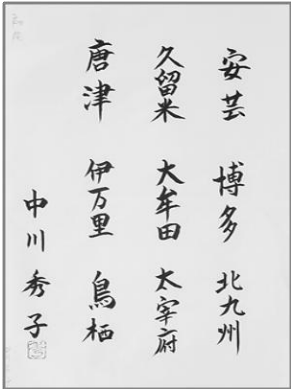 安芸 博多 北九州
久留米 大牟田 太宰府
唐津 伊万里 鳥栖
中川秀子